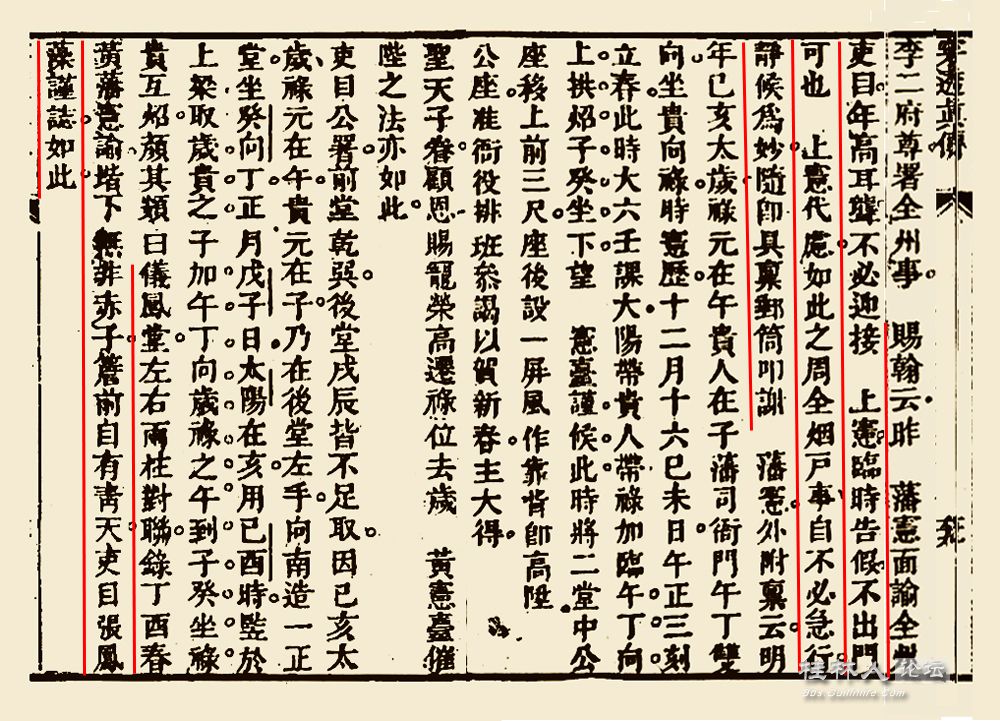 李二府尊署全州事　賜翰云昨　藩憲面諭全州
吏目年高耳聾不必迎接　上憲臨時告假不出門
可也　上憲代慮如此之周全烟戸事自不必急行
靜候爲妙隨卽具稟郵筒叩謝　藩憲外附稟云明
年已亥太歲祿元在午貴人在子藩司衙門午丁雙
向坐貴向祿時憲歷十二月十六已未日午正三刻
立春此時大六壬課大陽帶貴人帶祿加臨午丁向
上拱炤子癸坐下望　憲臺謹候此時將二堂中公
座移上前三尺座後設一屏風作靠背卽高陞
公座准衙役排班叅謁以賀新春主大得
聖天子眷顧恩賜寵榮高遷祿位去歲　黃憲臺催
陞之法亦如此
吏目公署前堂乾巽後堂戌辰皆不足取因已亥太
歲祿元在午貴元在子乃在後堂左手向南造一正
堂坐癸向丁正月戊子日太陽在亥用已酉時竪於
上梁取歲貴之子加午丁向歲祿之午到子癸坐祿
貴互炤顏其類曰儀鳳堂左右兩柱對聯錄丁酉春
黃藩憲諭堦下無非赤子簷前自有靑天吏目張鳳
藻謹誌如此
桂林人论坛
bbs.guilinlife.com